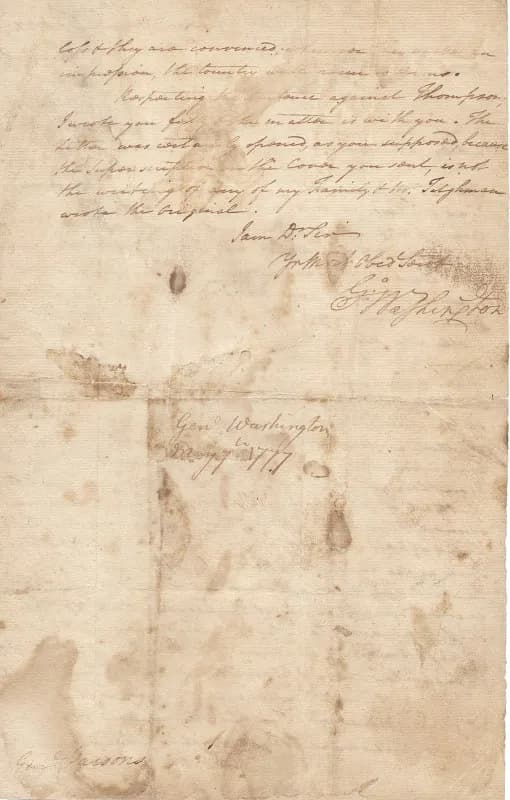 loss & they are convinced, 
impression, the Country
Respecting against Thompson,
I wrote you matter is with you. The
Letter was certainly opened, as you supposed, because
the Superscription the Cover you sent, is not
the writing of any of my Family & Mr. Tilghman
wrote the Original.
I am Dr Sir
Yr M Obed Servt
Go Washington
Genl Washington
May 7th 1777
Genl Parsons